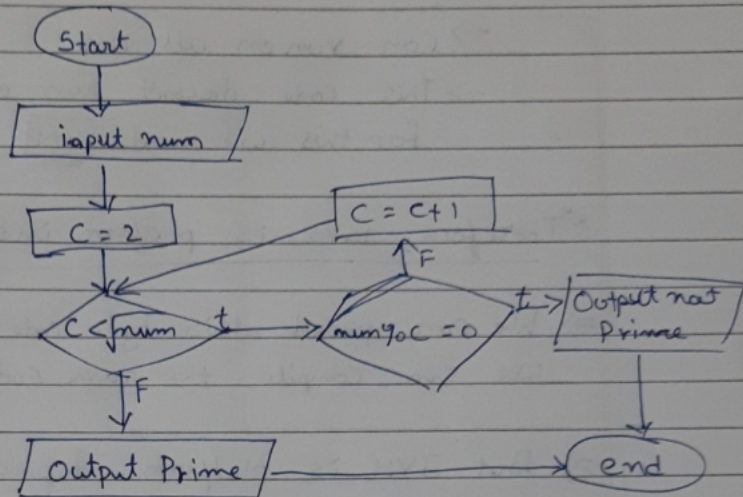 Start
input num
C = 2
C = C+1
F
C < √num
t
num % C = 0
t
Output not
Prime
F
Output Prime
end